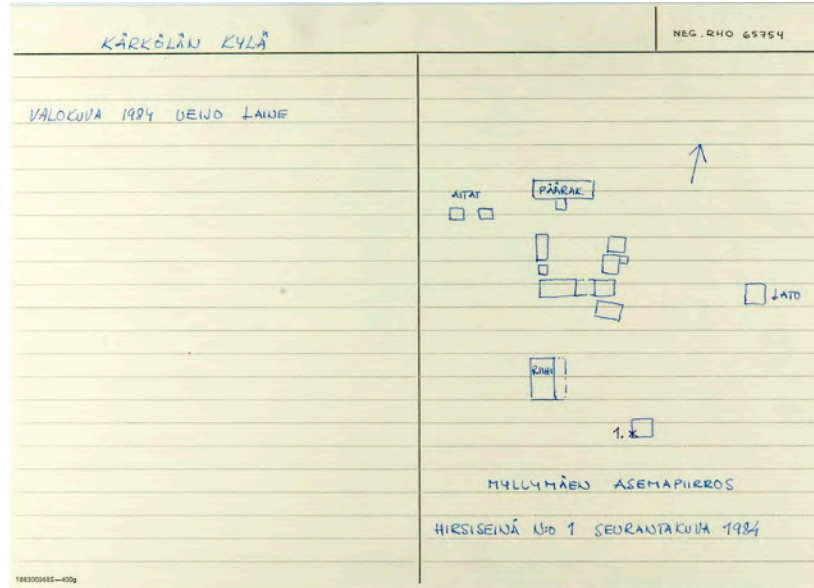 KÄRKÖLÄN KYLÄ
NEG. RHO 65754
VALOKUVA 1984 VEIJO LAINE
AITAT
PÄÄRAK.
LATO
RIIHI
1.
MYLLYMÄEN ASEMAPIIRROS
HIRSISEINÄ N:o 1 SEURANTAKUVA 1984
1883009685—400g